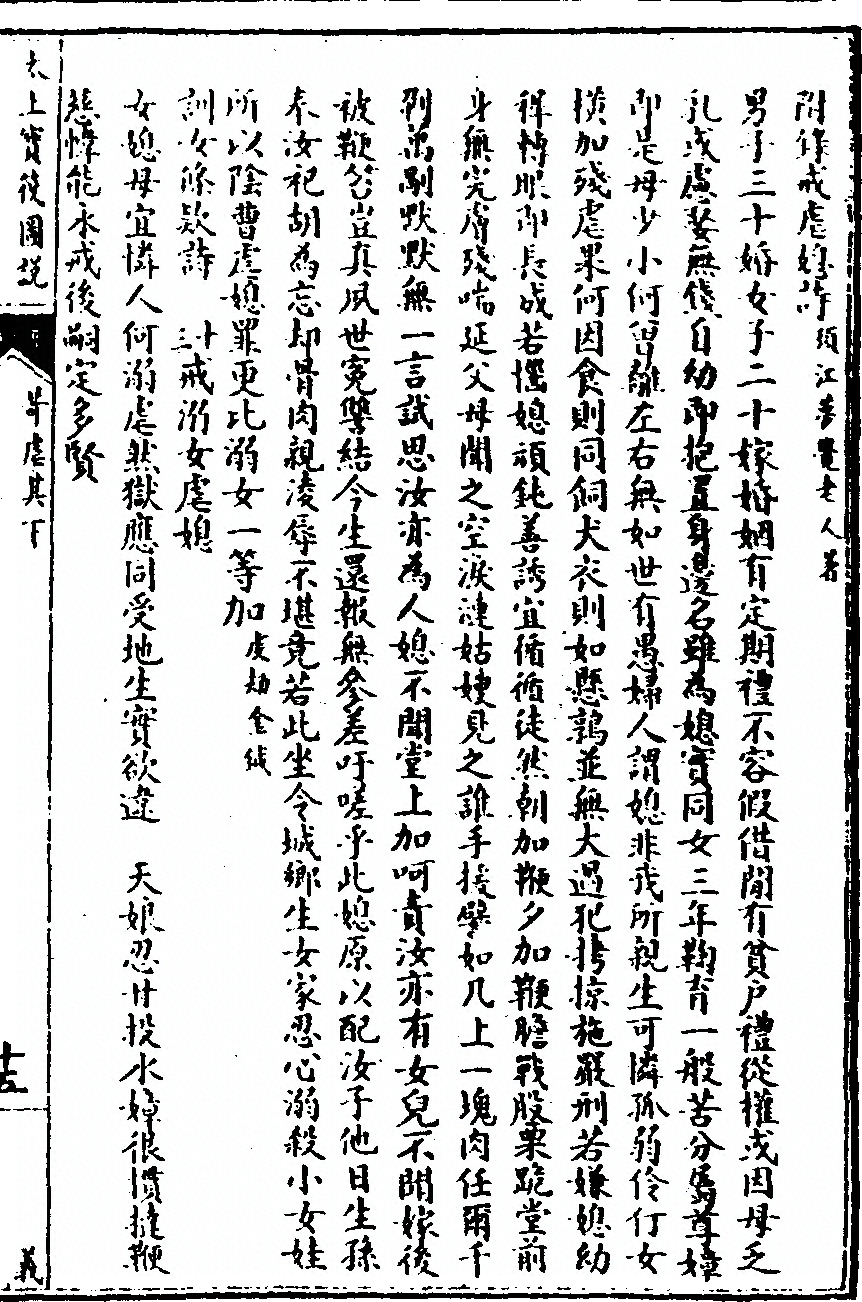 附錄戒虐媳詩 須江春覺老人著
男子三十婚女子二十嫁婚姻有定期禮不容假借間有貧戶禮從權或因母乏
乳或慮娶無錢自幼即抱置身邊名雖為媳實同女三年鞠育一般苦分屬尊嫜
即是母少小何曾離左右無如世有愚婦人謂媳非我所親生可憐孤弱伶仃女
橫加殘虐果何因食則同飼犬衣則如懸鶉並無大過犯拷掠施嚴刑若嫌媳幼
穉轉眼即長成若惱媳頑鈍善誘宜循循徒然朝加鞭夕加鞭膽戰股栗跪堂前
身無完膚殘喘延父母聞之空淚漣姑嫂見之誰手援譬如几上一塊肉任爾千
剁萬剮默默無一言試思汝亦為人媳不聞堂上加呵責汝亦有女兒不聞嫁後
被鞭笞豈真夙世冤讐結今生還報無參差吁嗟乎此媳原以配汝子他日生孫
奉汝祀胡為忘却骨肉親淩辱不堪竟若此坐令城鄉生女家忍心溺殺小女娃
所以陰曹虐媳罪更比溺女一等加 度劫金鍼
訓女條欵詩 卅戒溺女虐媳
女媳母宜憐人何溺虐然獄應同受地生實欲違 天娘忍甘投水嫜很慣撻鞭
慈幃能永戒後嗣定多賢
太上寶筏圖說
苛虐其下
十三
義